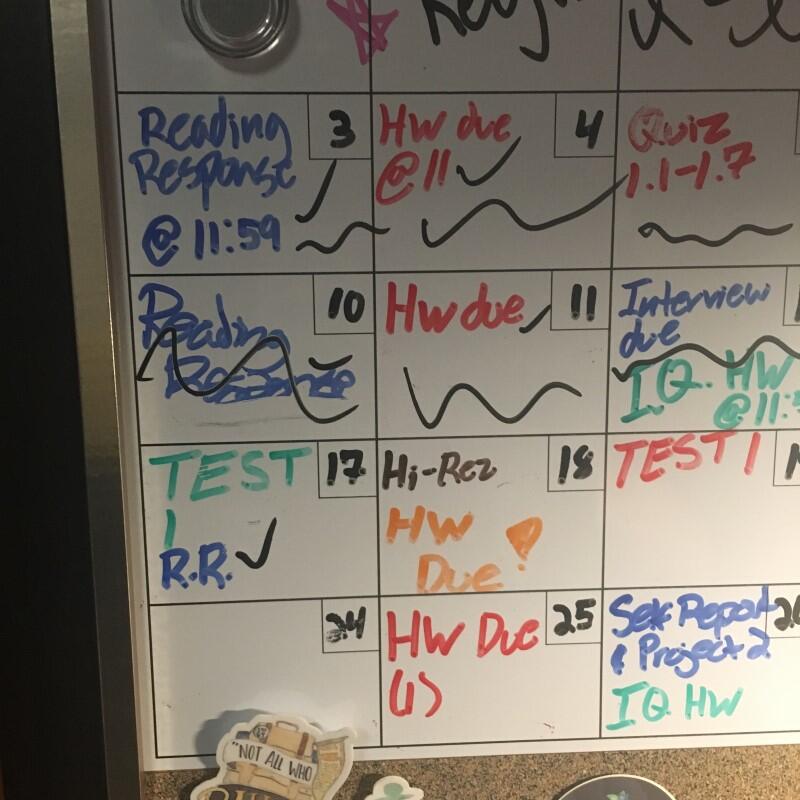 Reading
Response
@ 11:59
3
Hw due
@ 11
4
Quiz
1.1-1.7
10
Reading
Response
Hw due
11
Interview
due
I.Q. HW
@ 11:5
TEST
1
R.R.
17
Hi-Rez
HW
Due
18
TEST 1
24
HW Due
(1)
25
Self Report
& Project 2
IQ HW
"NOT ALL WHO